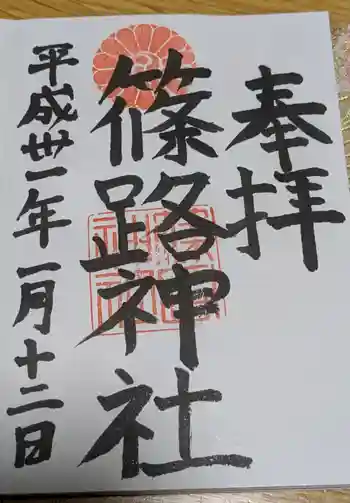 奉拝
篠路神社
平成卅一年一月十二日